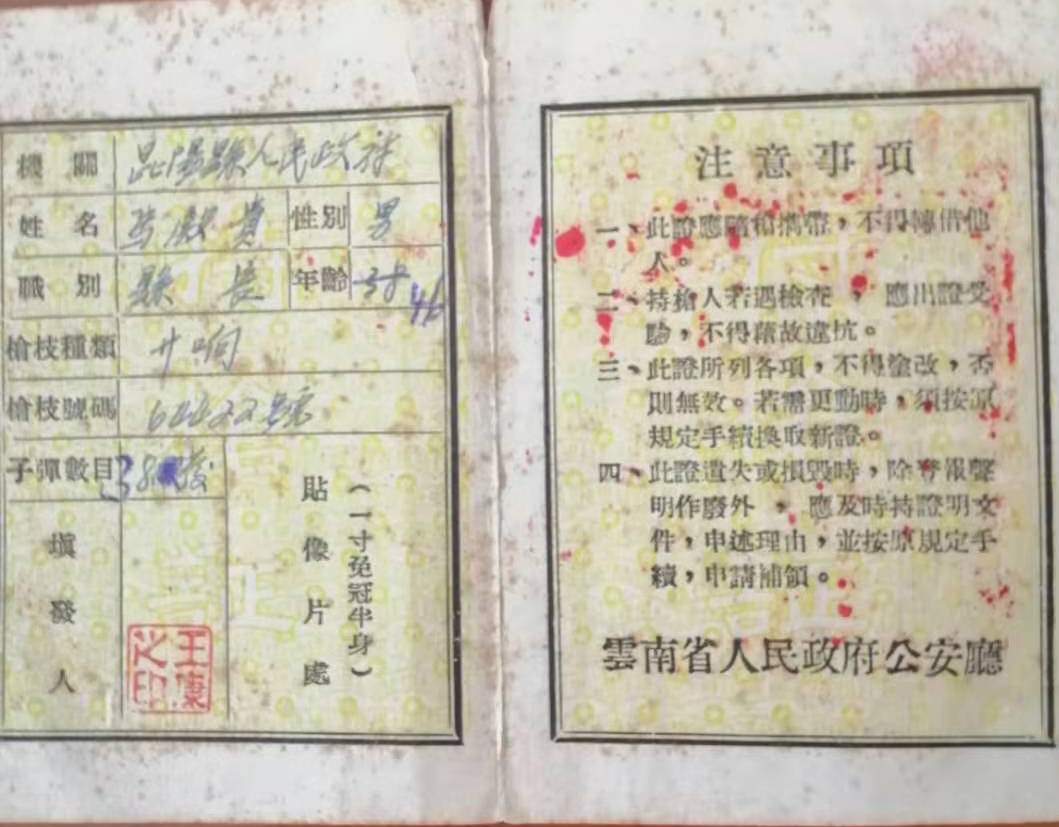 機關 昆陽縣人民政府
姓名 貴 性別 男
職別 縣長 年齡 38 46
槍枝種類 廾响
槍枝號碼 號
子彈數目 38發
填發人
王康之印
貼像片處
(一寸免冠半身)
注意事項
一、此證應隨槍攜帶,不得轉借他
人。
二、持槍人若遇檢查,應出證受
驗,不得藉故違抗。
三、此證所列各項,不得塗改,否
則無效。若需更動時,須按原
規定手續換取新證。
四、此證遺失或損毀時,除登報聲
明作廢外,應及時持證明文
件,申述理由,並按原規定手
續,申請補領。
雲南省人民政府公安廳